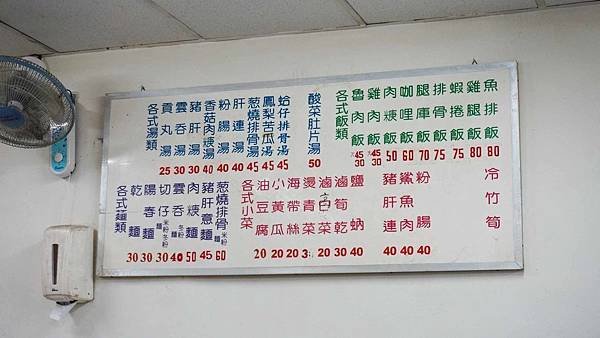 各式湯類
貢丸湯 25
雲吞湯 30
豬肝湯 30
香菇肉羹湯 40
粉腸湯 40
肝連湯 40
葱燒排骨湯 45
鳳梨苦瓜湯 45
蛤仔排骨湯 45
酸菜肚片湯 50
各式飯類
魯肉飯 大45 小30
雞肉飯 大45 小30
肉羹飯 50
咖哩飯 60
腿庫飯 70
排骨飯 75
蝦捲飯 75
雞腿飯 80
魚排飯 80
各式麵類
乾麵 30
陽春麵 30
切仔麵 米粉 冬粉 30
雲吞麵 40
肉羹麵 冬粉 50
豬肝意麵 45
葱燒排骨麵 米粉 60
各式小菜
油豆腐 20
小黃瓜 20
海帶絲 20
燙青菜
滷白菜 20
滷筍乾 30
鹽蚋 40
豬肝連 40
鯊魚肉 40
粉腸 40
冷竹筍